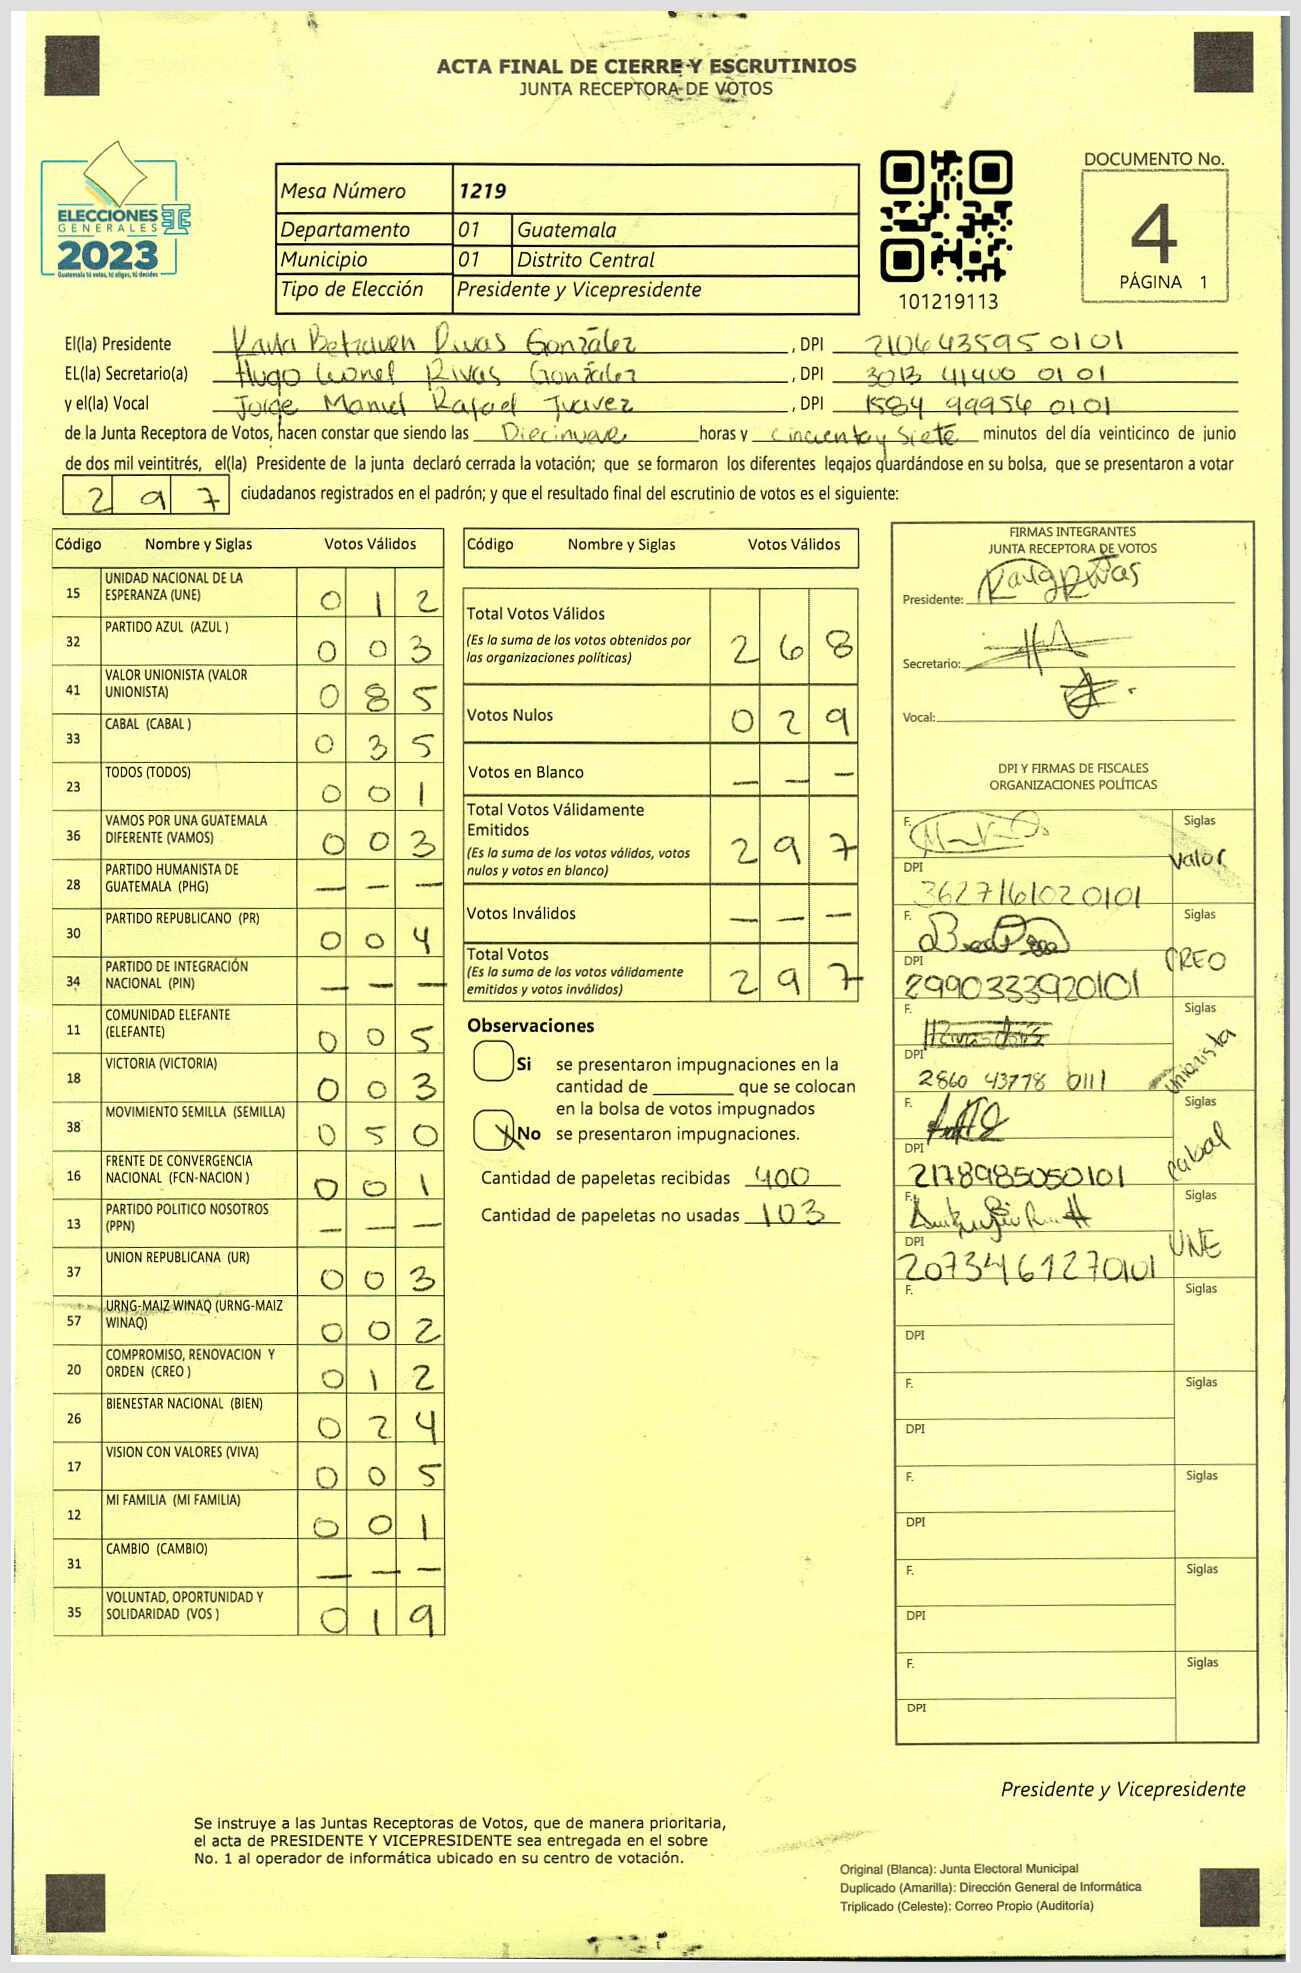 ACTA FINAL DE CIERRE Y ESCRUTINIOS
JUNTA RECEPTORA DE VOTOS
ELECCIONES
GENERALES
2023
Guatemala tú votas, tú eliges, tú decides
Mesa Número 1219
Departamento 01 Guatemala
Municipio 01 Distrito Central
Tipo de Elección Presidente y Vicepresidente
101219113
DOCUMENTO No.
4
PÁGINA 1
El(la) Presidente Rivas González, DPI 210643595 0101
EL(la) Secretario(a) Hugo Leonel Rivas González, DPI 3013 41400 01 01
y el(la) Vocal Jorge Manuel Rafael Juarez, DPI 1584 99956 0101
de la Junta Receptora de Votos, hacen constar que siendo las Diecinueve horas y cincuenta y siete minutos del día veinticinco de junio
de dos mil veintitrés, el(la) Presidente de la junta declaró cerrada la votación; que se formaron los diferentes legajos guardándose en su bolsa, que se presentaron a votar
297 ciudadanos registrados en el padrón; y que el resultado final del escrutinio de votos es el siguiente:
Código Nombre y Siglas Votos Válidos
15 UNIDAD NACIONAL DE LA ESPERANZA (UNE) 0 1 2
32 PARTIDO AZUL (AZUL ) 0 0 3
41 VALOR UNIONISTA (VALOR UNIONISTA) 0 8 5
33 CABAL (CABAL ) 0 3 5
23 TODOS (TODOS) 0 0 1
36 VAMOS POR UNA GUATEMALA DIFERENTE (VAMOS) 0 0 3
28 PARTIDO HUMANISTA DE GUATEMALA (PHG) — — —
30 PARTIDO REPUBLICANO (PR) 0 0 4
34 PARTIDO DE INTEGRACIÓN NACIONAL (PIN) — — —
11 COMUNIDAD ELEFANTE (ELEFANTE) 0 0 5
18 VICTORIA (VICTORIA) 0 0 3
38 MOVIMIENTO SEMILLA (SEMILLA) 0 5 0
16 FRENTE DE CONVERGENCIA NACIONAL (FCN-NACION ) 0 0 1
13 PARTIDO POLITICO NOSOTROS (PPN) — — —
37 UNION REPUBLICANA (UR) 0 0 3
57 URNG-MAIZ WINAQ (URNG-MAIZ WINAQ) 0 0 2
20 COMPROMISO, RENOVACION Y ORDEN (CREO ) 0 1 2
26 BIENESTAR NACIONAL (BIEN) 0 2 4
17 VISION CON VALORES (VIVA) 0 0 5
12 MI FAMILIA (MI FAMILIA) 0 0 1
31 CAMBIO (CAMBIO) — — —
35 VOLUNTAD, OPORTUNIDAD Y SOLIDARIDAD (VOS ) 0 1 9
Código Nombre y Siglas Votos Válidos
Total Votos Válidos 2 6 8
(Es la suma de los votos obtenidos por
las organizaciones políticas)
Votos Nulos 0 2 9
Votos en Blanco — — —
Total Votos Válidamente
Emitidos 2 9 7
(Es la suma de los votos válidos, votos
nulos y votos en blanco)
Votos Inválidos — — —
Total Votos 2 9 7
(Es la suma de los votos válidamente
emitidos y votos inválidos)
Observaciones
Si se presentaron impugnaciones en la
cantidad de ________ que se colocan
en la bolsa de votos impugnados
X No se presentaron impugnaciones.
Cantidad de papeletas recibidas 400
Cantidad de papeletas no usadas 103
FIRMAS INTEGRANTES
JUNTA RECEPTORA DE VOTOS
Presidente:
Secretario:
Vocal:
DPI Y FIRMAS DE FISCALES
ORGANIZACIONES POLÍTICAS
F. Siglas
DPI Valor
3627161020101
F. Siglas
DPI CREO
2990333920101
F. Siglas
DPI Unionista
2860 43778 0111
F. Siglas
DPI cabal
2178985050101
F. Siglas
DPI UNE
2073461270101
F. Siglas
DPI
F. Siglas
DPI
F. Siglas
DPI
F. Siglas
DPI
F. Siglas
DPI
Presidente y Vicepresidente
Se instruye a las Juntas Receptoras de Votos, que de manera prioritaria,
el acta de PRESIDENTE Y VICEPRESIDENTE sea entregada en el sobre
No. 1 al operador de informática ubicado en su centro de votación.
Original (Blanca): Junta Electoral Municipal
Duplicado (Amarilla): Dirección General de Informática
Triplicado (Celeste): Correo Propio (Auditoría)